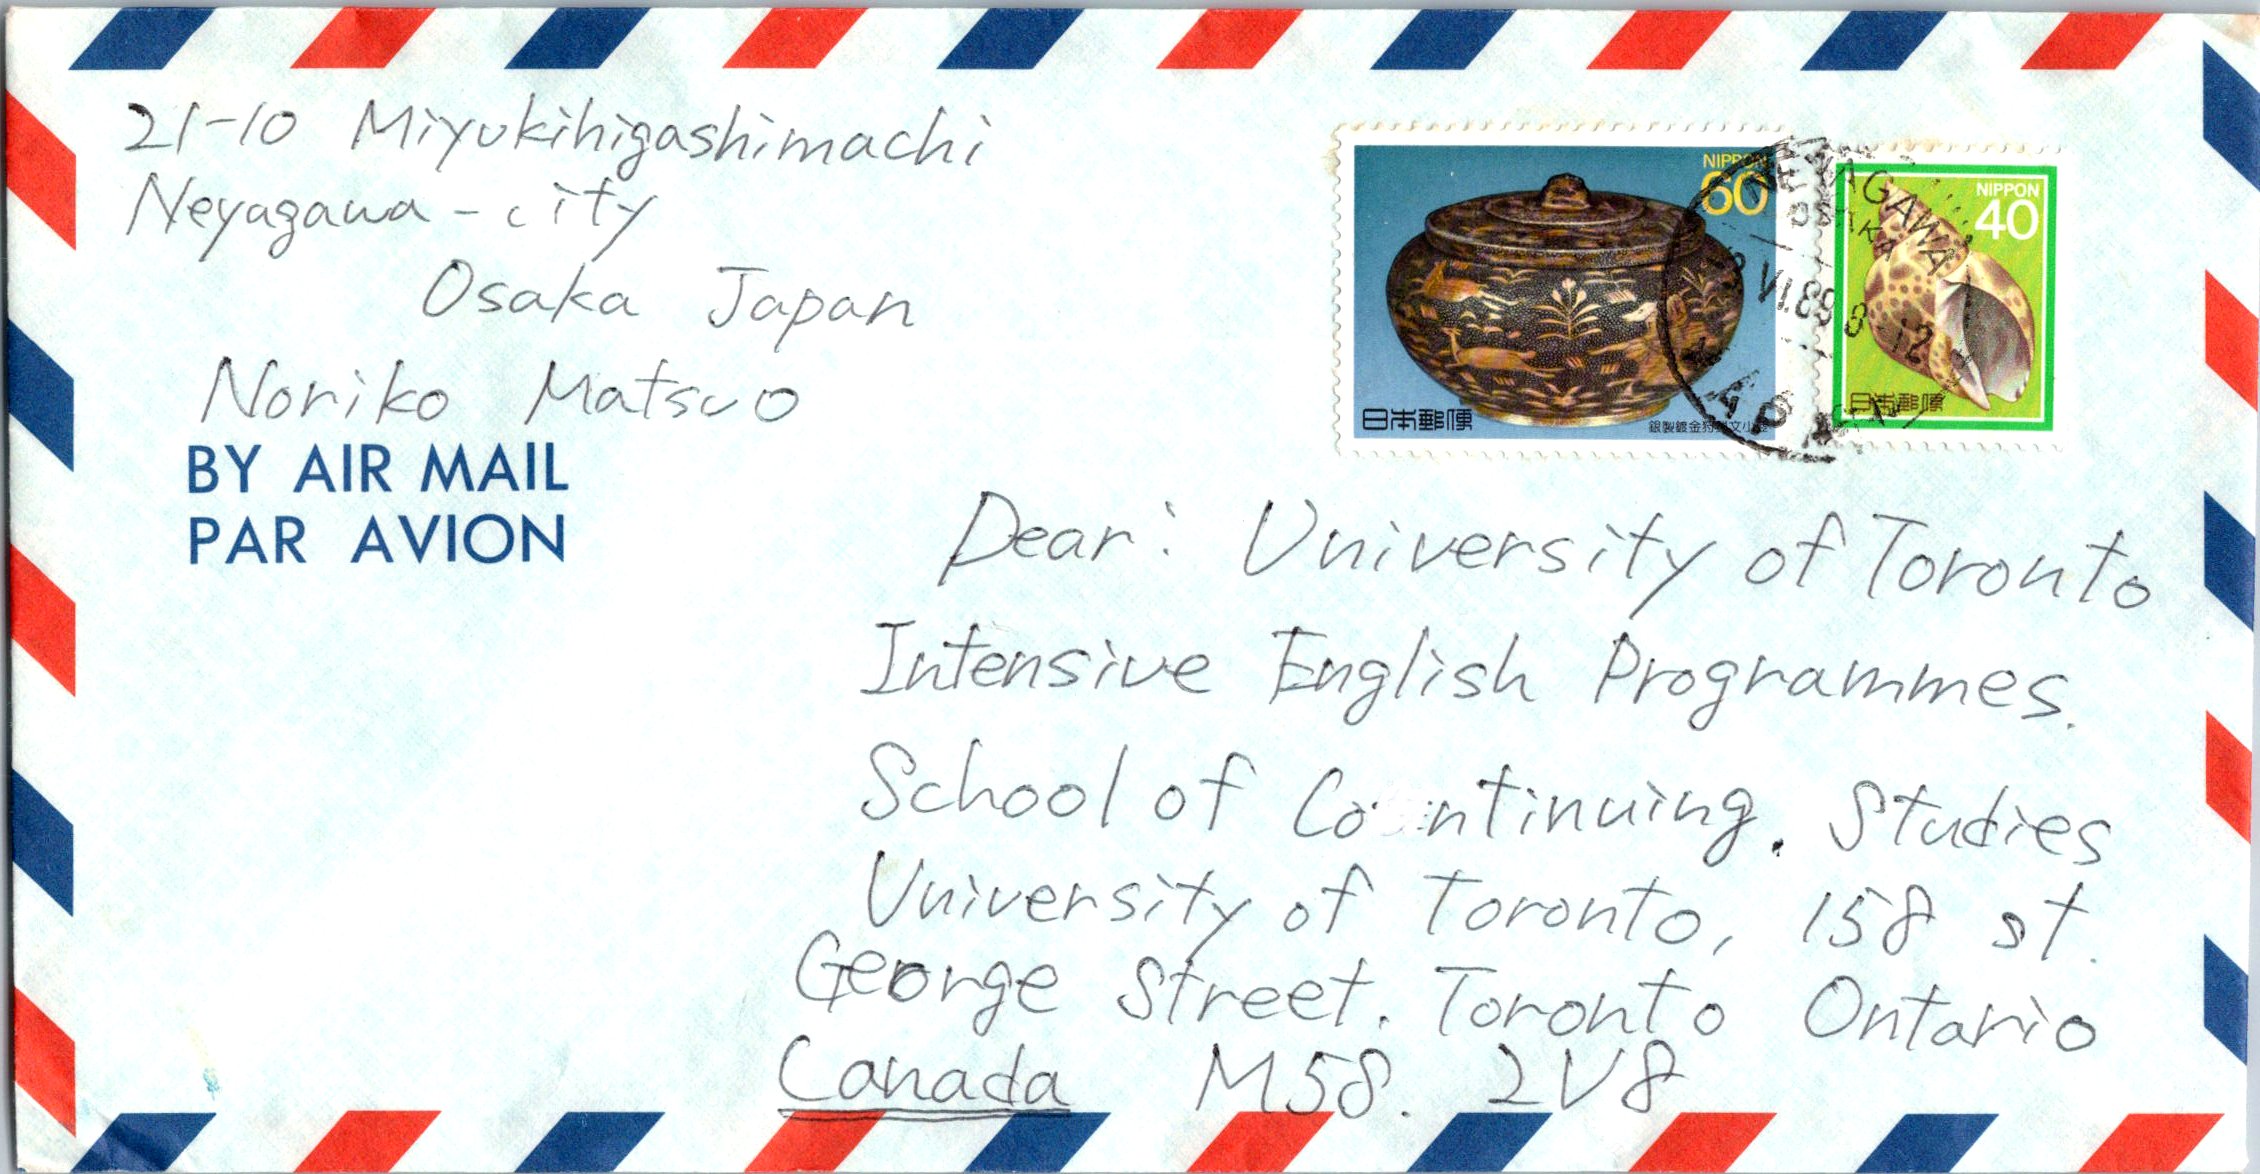 21-10 Miyukihigashimachi
Neyagawa-city
Osaka Japan
Noriko Matsuo
BY AIR MAIL
PAR AVION
NIPPON
60
日本郵便
銀製鍍金狩猟文小壺
NIPPON
40
日本郵便
NEYAGAWA
OSAKA
VI 89 8-12
JAPAN
Dear: University of Toronto
Intensive English Programmes.
School of Continuing. Studies
University of Toronto, 158 st.
George Street. Toronto Ontario
Canada M58. 2V8